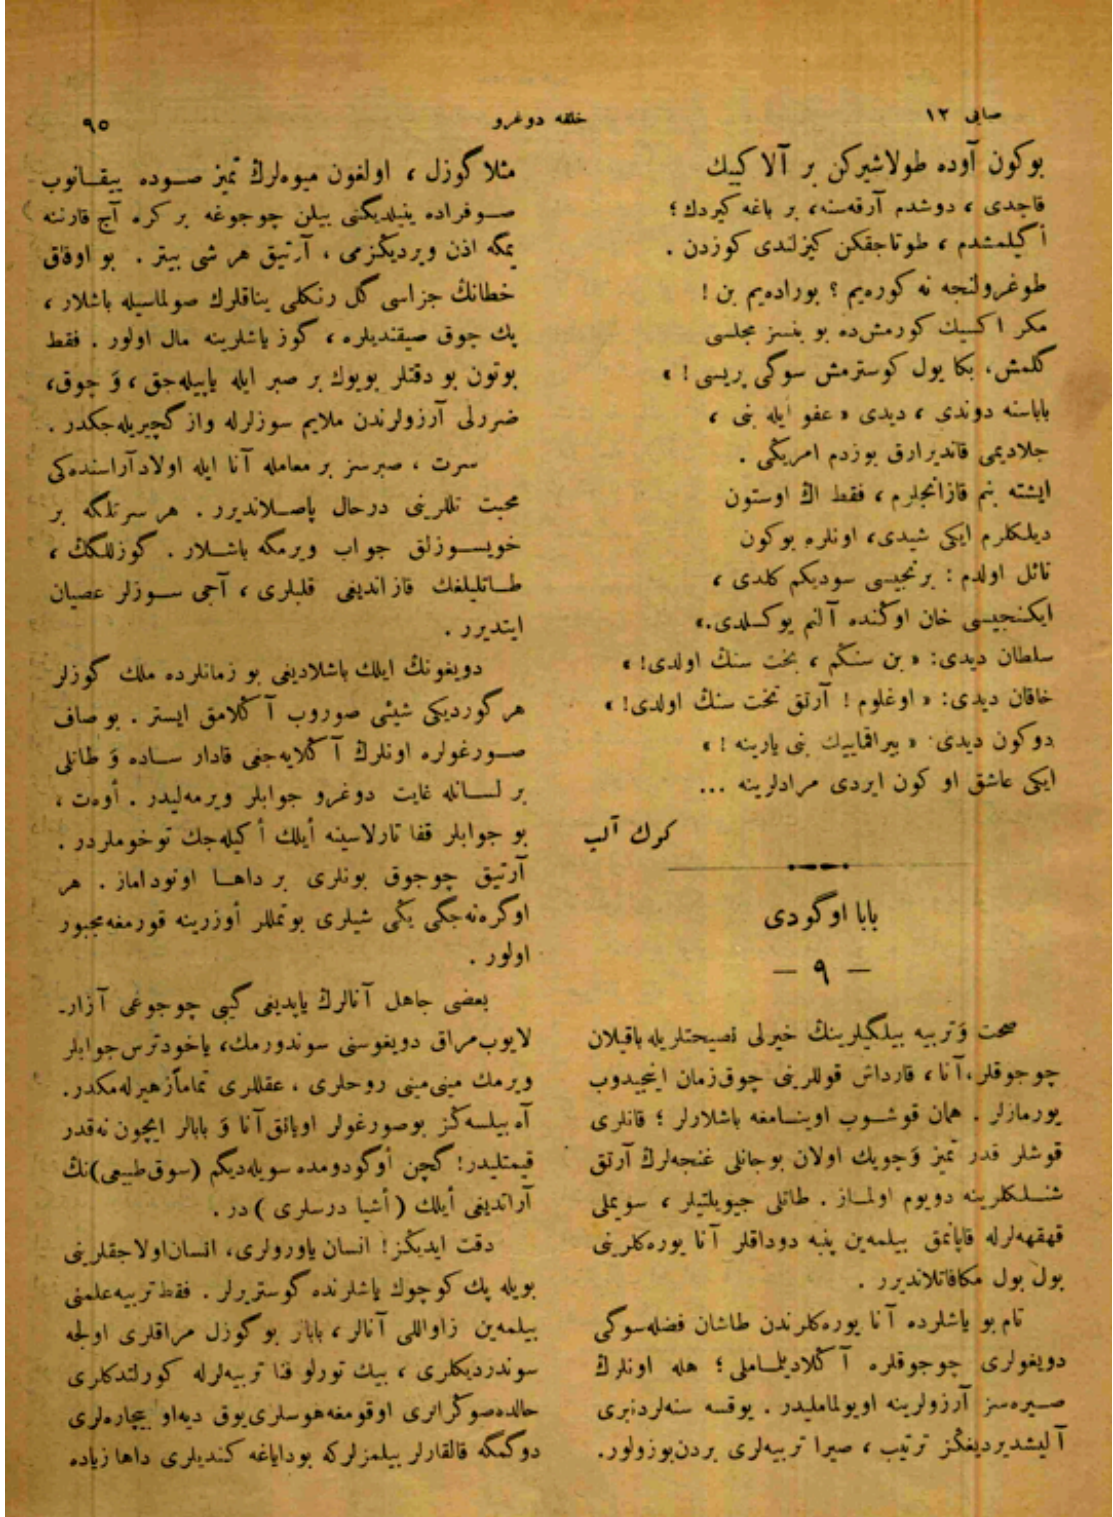 صایی ١٢
خلقه دوغرو
٩٥
بوكون آوده طولاشیركن بر آلا كییك
قاچدی ، دوشدم آرقه‌سنه، بر باغه كیردك ؛
أكیلمشدم ، طوتاجقكن كیزلندی كوزدن .
طوغرولنجه نه كوره‌یم ؟ بوراده‌یم بن !
مكر اكسیك كورمش‌ده بو بنسز مجلسی
گلمش، بكا یول كوسترمش سوگی پریسی ! »
باباسنه دوندی ، دیدی « عفو ایله بنی ،
جلادیمی قاندیرارق بوزدم امریكی .
ایشته بنم قازانجلرم ، فقط اڭ اوستون
دیلكلرم ایكی شیدی، اونلره بوكون
نائل اولدم : برنجیسی سودیكم كلدی ،
ایكنجیسی خان اوڭنده آلنم یوكسلدی.»
سلطان دیدی: « بن سنكم ، بخت سنڭ اولدی! »
خاقان دیدی: « اوغلوم ! آرتق تخت سنڭ اولدی! »
دوكون دیدی: « بیراقماییڭ بنی یارینه ! »
ایكی عاشق او كون ایردی مرادلرینه ...
كوك آلپ
بابا اوگودی
— ٩ —
صحت وَ تربیه بیلگیلرینڭ خیرلی نصیحتلریله باقیلان
چوجوقلر، آنا ، قارداش قوللرینی چوق زمان اینجیدوب
یورمازلر . همان قوشوب اوینامغه باشلارلر ؛ قانلری
قوشلر قدر تمیز وَ چویك اولان بو جانلی غنجه‌لرڭ آرتق
شنلكلرینه دویوم اولماز . طاتلی جیویلتیلر ، سویملی
قهقهه‌لرله قاپانمق بیلمه‌ین پنبه دوداقلر آنا یوره‌كلرینی
بول بول مكافاتلاندیرر .
تام بو یاشلرده آنا یوره‌كلرندن طاشان فضله سوگی
دویغولری چوجوقلره آڭلادیلماملی ؛ هله اونلرڭ
صیره‌سز آرزولرینه اویولماملیدر . یوقسه سنه‌لردنبری
آلیشدیردیغڭز ترتیب ، صیرا تربیه‌لری بردن بوزولور.
مثلا گوزل ، اولغون میوه‌لرڭ تمیز صوده ییقانوب
صوفراده ینیلدیگنی بیلن چوجوغه بر كره آج قارننه
یمگه اذن ویردیڭزمی ، آرتیق هر شی بیتر . بو اوفاق
خطانڭ جزاسی گل رنكلی یناقلرڭ صولماسیله باشلار ،
پك چوق صیقندیلره ، گوز یاشلرینه مال اولور . فقط
بوتون بو دقتلر بویوك بر صبر ایله یاپیله‌جق ، وَ چوق،
ضررلی آرزولرندن ملایم سوزلرله واز گچیریله‌جكدر .
سرت ، صبرسز بر معامله آنا ایله اولاد آراسنده‌كی
محبت تللرینی درحال پاصلاندیرر . هر سرتلگه بر
خویسوزلق جواب ویرمگه باشلار . گوزللگڭ ،
طاتلیلغڭ قازاندیغی قلبلری ، آجی سوزلر عصیان
ایتدیرر .
دویغونڭ ایلك باشلادیغی بو زمانلرده ملك گوزلر
هر گوردیكی شیئی صوروب آڭلامق ایستر . بو صاف
صورغولره اونلرڭ آڭلایه‌جغی قادار ساده وَ طاتلی
بر لسانله غایت دوغرو جوابلر ویرمه‌لیدر . أوەت ،
بو جوابلر قفا تارلاسینه أیلك أكیله‌جك توخوملردر .
آرتیق چوجوق بونلری بر داها اونوداماز . هر
اوگره‌نه‌جگی یڭی شیلری بو تمللر أوزرینه قورمغه مجبور
اولور .
بعضی جاهل آنالرڭ یاپدیغی گبی چوجوغی آزار-
لایوب مراق دویغوسنی سوندورمك، یاخود ترس جوابلر
ویرمك مینی مینی روحلری ، عقللری تماماً زهیرله‌مكدر.
آه بیلسه‌ڭز بو صورغولر اویانق آنا وَ بابالر ایچون نه قدر
قیمتلیدر! گچن أوگودومده سویله‌دیگم (سوق طبیعی)نڭ
آراندیغی أیلك ( أشیا درسلری ) در .
دقت ایدیڭز! انسان یاورولری، انسان اولاجقلرینی
بویله پك كوچوك یاشلرنده گوستریرلر . فقط تربیه علمنی
بیلمه‌ین زاواللی آنالر، بابالر بو گوزل مراقلری اولجه
سوندردیكلری ، بیك تورلو فنا تربیه‌لرله كورلتدكلری
حالده صوڭرالری اوقومغه هوسلری یوق دیه او بیچاره‌لری
دوگمگه قالقارلر بیلمزلركه بو دایاغه كندیلری داها زیاده